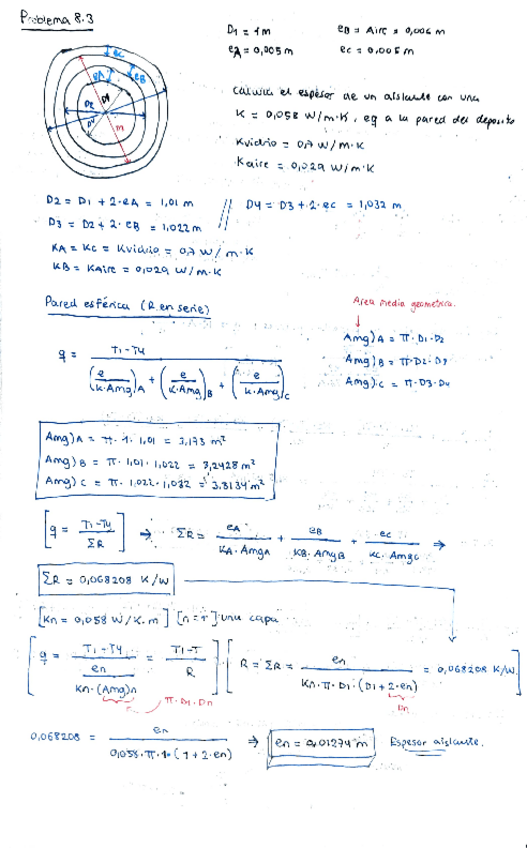 Problema 8.3
D1 = 1m eB = Aire = 0,006 m
eA = 0,005 m ec = 0.005 m
ec
eA eB
D1
D2
m
Calcula el espesor de un aislante con una
K = 0,058 W/m·K, eq a la pared del deposito
Kvidrio = 0,7 W/m·K
Kaire = 0,029 W/m·K
D2 = D1 + 2·eA = 1,01 m // D4 = D3 + 2·ec = 1,032 m
D3 = D2 + 2·eB = 1,022 m
KA = KC = Kvidrio = 0,7 W/m·K
KB = Kaire = 0,029 W/m·K
Pared esférica (R. en serie) Area media geometrica.
q = T1-T4 / (e/K·Amg)A + (e/K·Amg)B + (e/K·Amg)C
Amg)A = π·D1·D2
Amg)B = π·D2·D3
Amg)C = π·D3·D4
Amg)A = π·1·1,01 = 3,173 m²
Amg)B = π·1,01·1,022 = 3,2428 m²
Amg)C = π·1,022·1,032 = 3,3134 m²
[q = T1-T4 / ΣR] ⇒ ΣR = eA / KA·AmgA + eB / KB·AmgB + ec / KC·AmgC ⇒
ΣR = 0,068208 K/W
[Kn = 0,058 W/K·m] [n=1] una capa
[q = T1-T4 / en / Kn·(Amg)n = T1-T / R] [R = ΣR = en / Kn·π·D1·(D1+2·en) = 0,068208 K/W.
π·D1·Dn Dn
0,068208 = en / 0,058·π·1·(1+2·en) ⇒ en = 0,01274 m Espesor aislante.